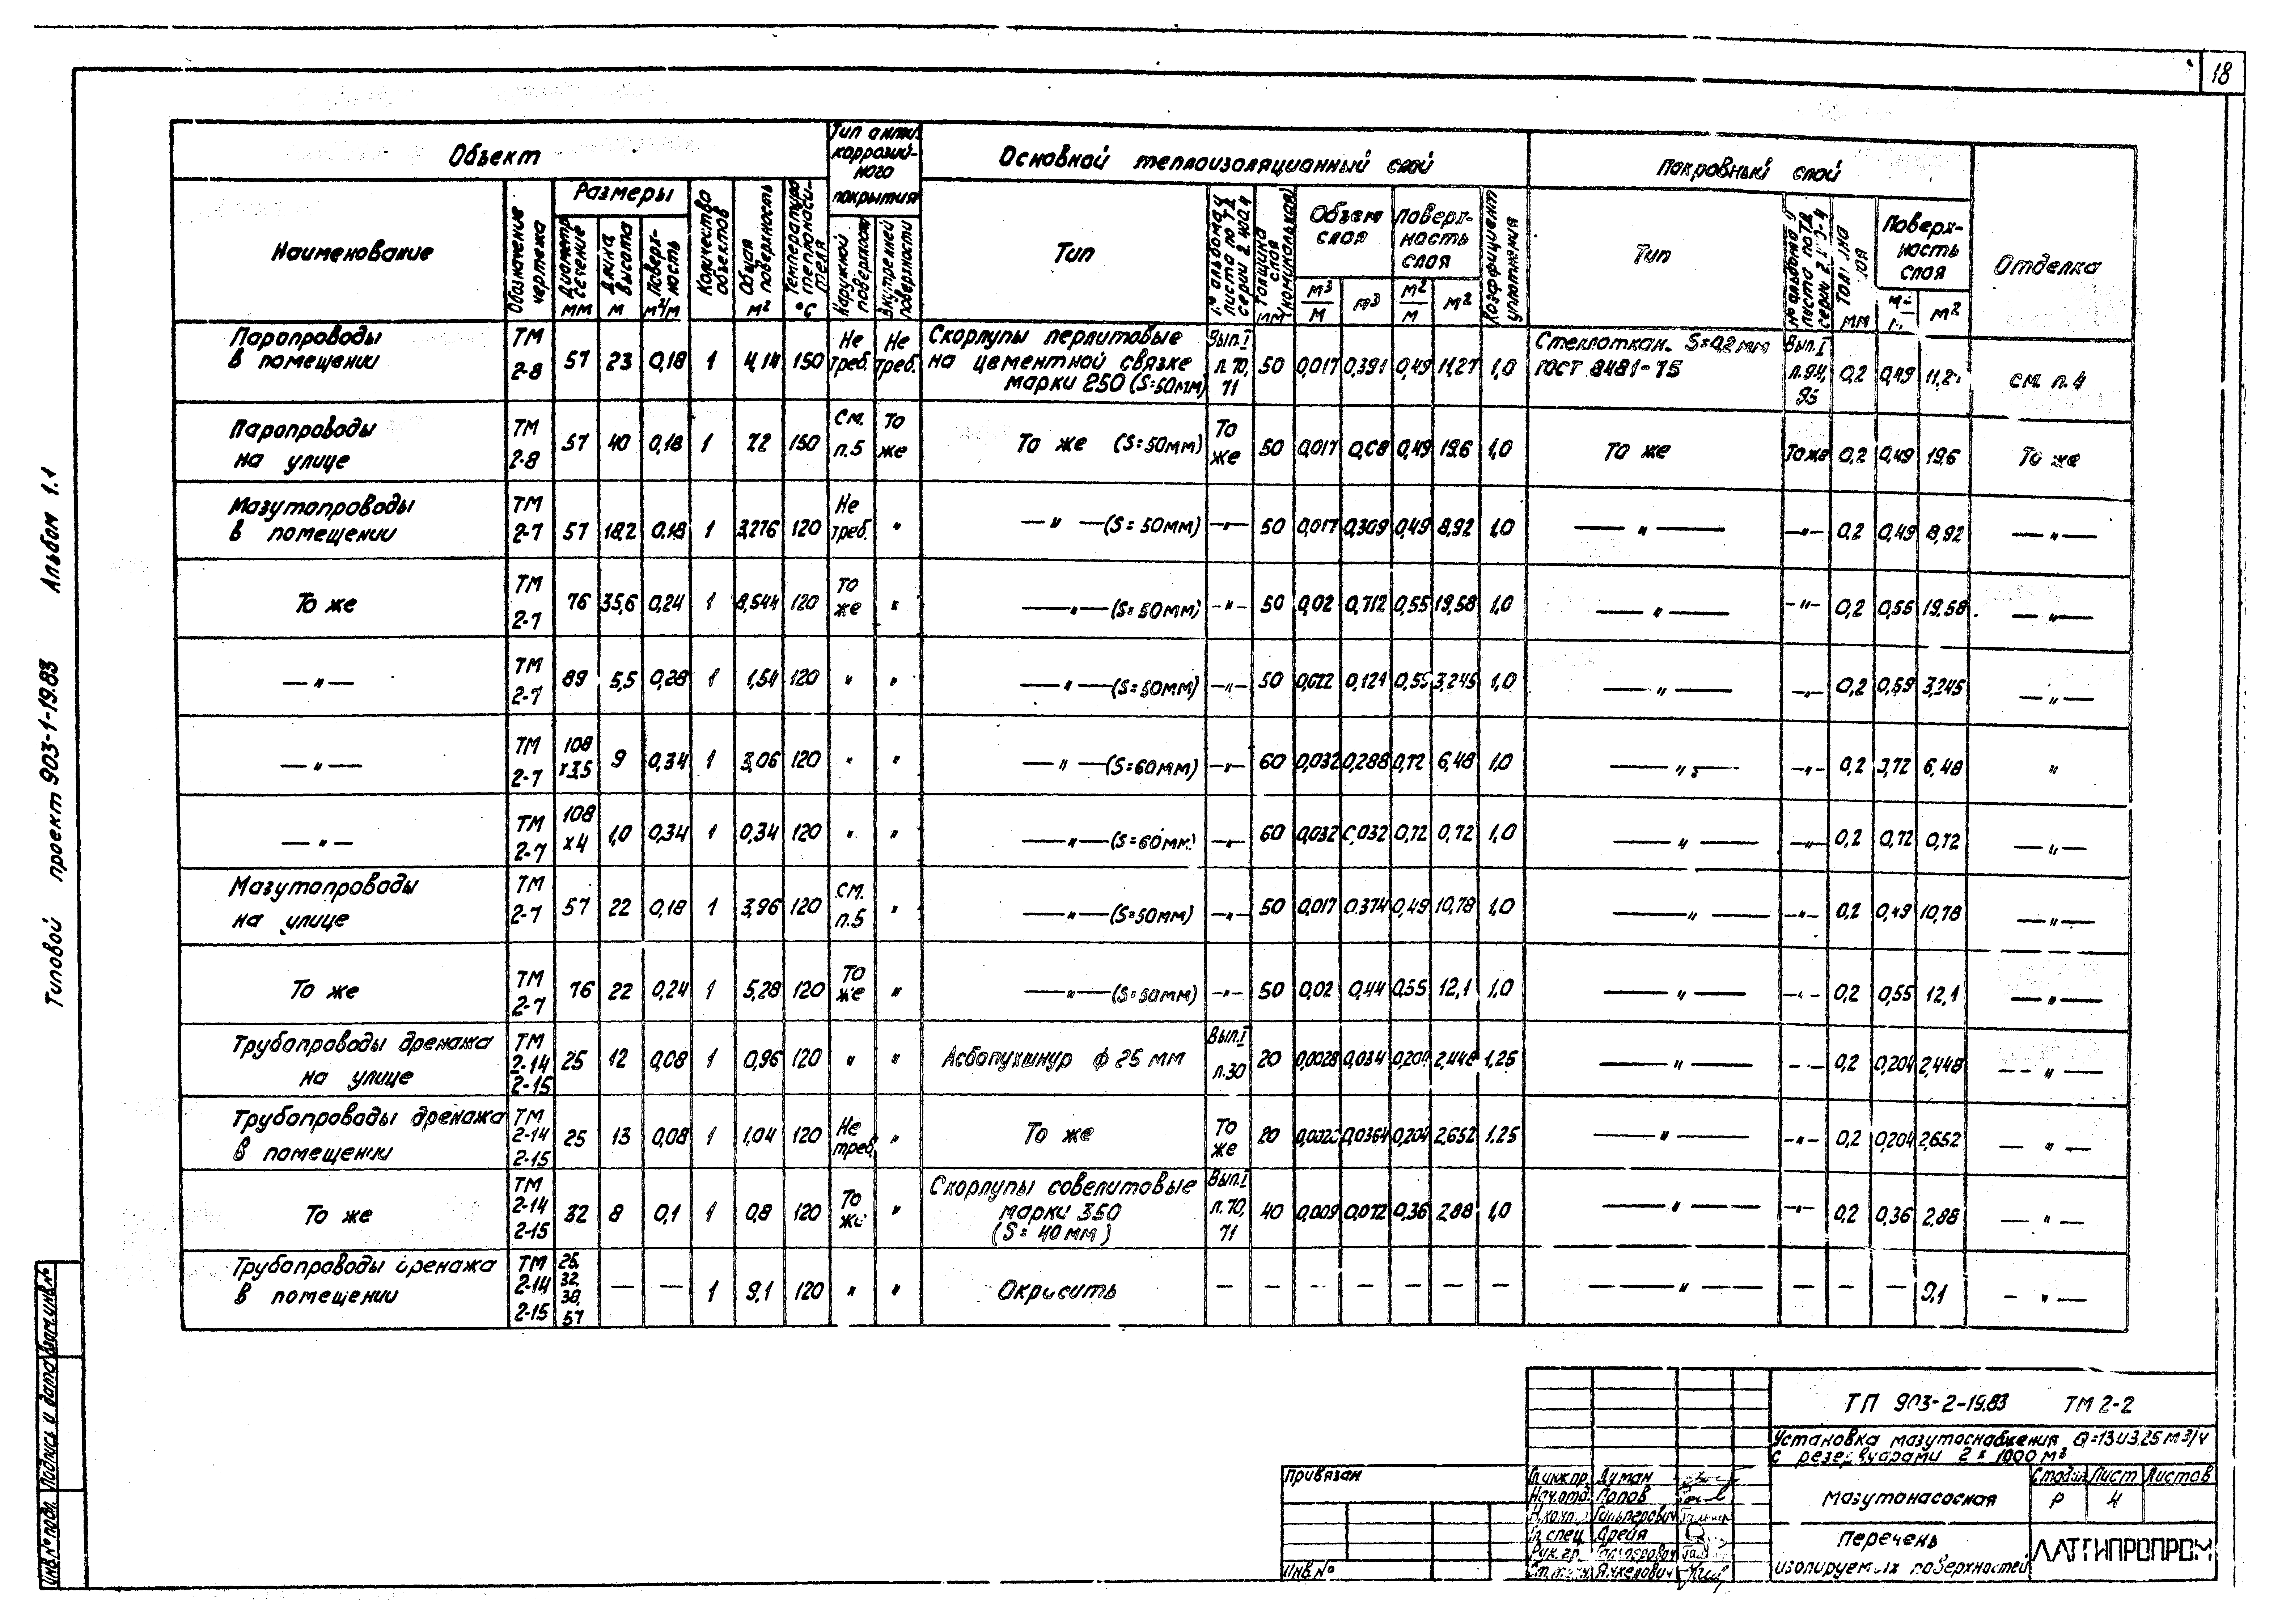 18
Типовой проект 903-1-19.83 Альбом 1.1
Объект
Тип антикоррозийного покрытия
Основной теплоизоляционный слой
Покровный слой
Отделка
Наименование
Обозначение чертежа
Размеры
Диаметр сечение мм
Длина высота м
Поверхность м²/м
Количество объектов
Общая поверхность м²
Температура теплоносителя °С
Наружной поверхности
Внутренней поверхности
Тип
№ альбома и листа по ТД серии 2.400-4
Толщина слоя (номинальная) мм
Объем слоя
м³/м
м³
Поверхность слоя
м²/м
м²
Коэффициент уплотнения
Тип
Поверхность слоя
мм
м²
Паропроводы в помещении ТМ 2-8 57 23 0,18 1 4,14 150 Не треб. Не треб. Скорлупы перлитовые на цементной связке марки 250 (S=50мм) Вып.I л.70, 71 50 0,017 0,391 0,49 11,27 1,0 Стеклоткан. S=0,2мм ГОСТ 8481-75 Вып.I л.94, 95 0,2 0,49 см. п.4
Паропроводы на улице ТМ 2-8 57 40 0,18 1 7,2 150 См. п.5 То же То же (S=50мм) То же 50 0,017 0,68 0,49 19,6 1,0 То же То же 0,2 0,49 19,6 То же
Мазутопроводы в помещении ТМ 2-7 57 18,2 0,18 1 3,276 120 Не треб. " —"—(S=50мм) —"— 50 0,017 0,309 0,49 8,92 1,0 —"— —"— 0,2 0,49 8,92 —"—
То же ТМ 2-7 76 35,6 0,24 1 8,544 120 То же " —"—(S=50мм) —"— 50 0,02 0,712 0,55 19,58 1,0 —"— —"— 0,2 0,55 19,58 —"—
—"— ТМ 2-7 89 5,5 0,28 1 1,54 120 " " —"—(S=50мм) —"— 50 0,022 0,121 0,59 3,245 1,0 —"— —"— 0,2 0,59 3,245 —"—
—"— ТМ 2-7 108 х3,5 9 0,34 1 3,06 120 " " —"—(S=60мм) —"— 60 0,032 0,288 0,72 6,48 1,0 —"— —"— 0,2 0,72 6,48 "
—"— ТМ 2-7 108 х4 1,0 0,34 1 0,34 120 " " —"—(S=60мм) —"— 60 0,032 0,032 0,72 0,72 1,0 —"— —"— 0,2 0,72 0,72 —"—
Мазутопроводы на улице ТМ 2-7 57 22 0,18 1 3,96 120 См. п.5 " —"—(S=50мм) —"— 50 0,017 0,374 0,49 10,78 1,0 —"— —"— 0,2 0,49 10,78 —"—
То же ТМ 2-7 76 22 0,24 1 5,28 120 То же " —"—(S=50мм) —"— 50 0,02 0,44 0,55 12,1 1,0 —"— —"— 0,2 0,55 12,1 —"—
Трубопроводы дренажа на улице ТМ 2-14 2-15 25 12 0,08 1 0,96 120 " " Асбопухшнур ф 25 мм Вып.I л.30 20 0,0028 0,034 0,204 2,448 1,25 —"— —"— 0,2 0,204 2,448 —"—
Трубопроводы дренажа в помещении ТМ 2-14 2-15 25 13 0,08 1 1,04 120 Не треб. " То же То же 20 0,0028 0,0364 0,204 2,652 1,25 —"— —"— 0,2 0,204 2,652 —"—
То же ТМ 2-14 2-15 32 8 0,1 1 0,8 120 То же " Скорлупы совелитовые марки 350 (S=40мм) Вып.I л.70, 71 40 0,009 0,072 0,36 2,88 1,0 —"— —"— 0,2 0,36 2,88 —"—
Трубопроводы дренажа в помещении ТМ 2-14 2-15 25, 32, 38, 57 — — 1 9,1 120 " " Окрасить — — — — — — — —"— — — — 9,1 —"—
ТП 903-2-19.83 ТМ 2-2
Установка мазутоснабжения Q=13 и 3.25 м3/ч
с резервуарами 2 х 1000 м3
Стадия Лист Листов
Мазутонасосная Р 4
Перечень
изолируемых поверхностей
ЛАТГИПРОПРОМ
Привязан
Инв №
Гл.инж.пр. Думан
Нач.отд. Попов
Н.контр. Гальперович
Гл.спец
Рук.гр.
Инв.№ подл. Подпись и дата Взам.инв.№